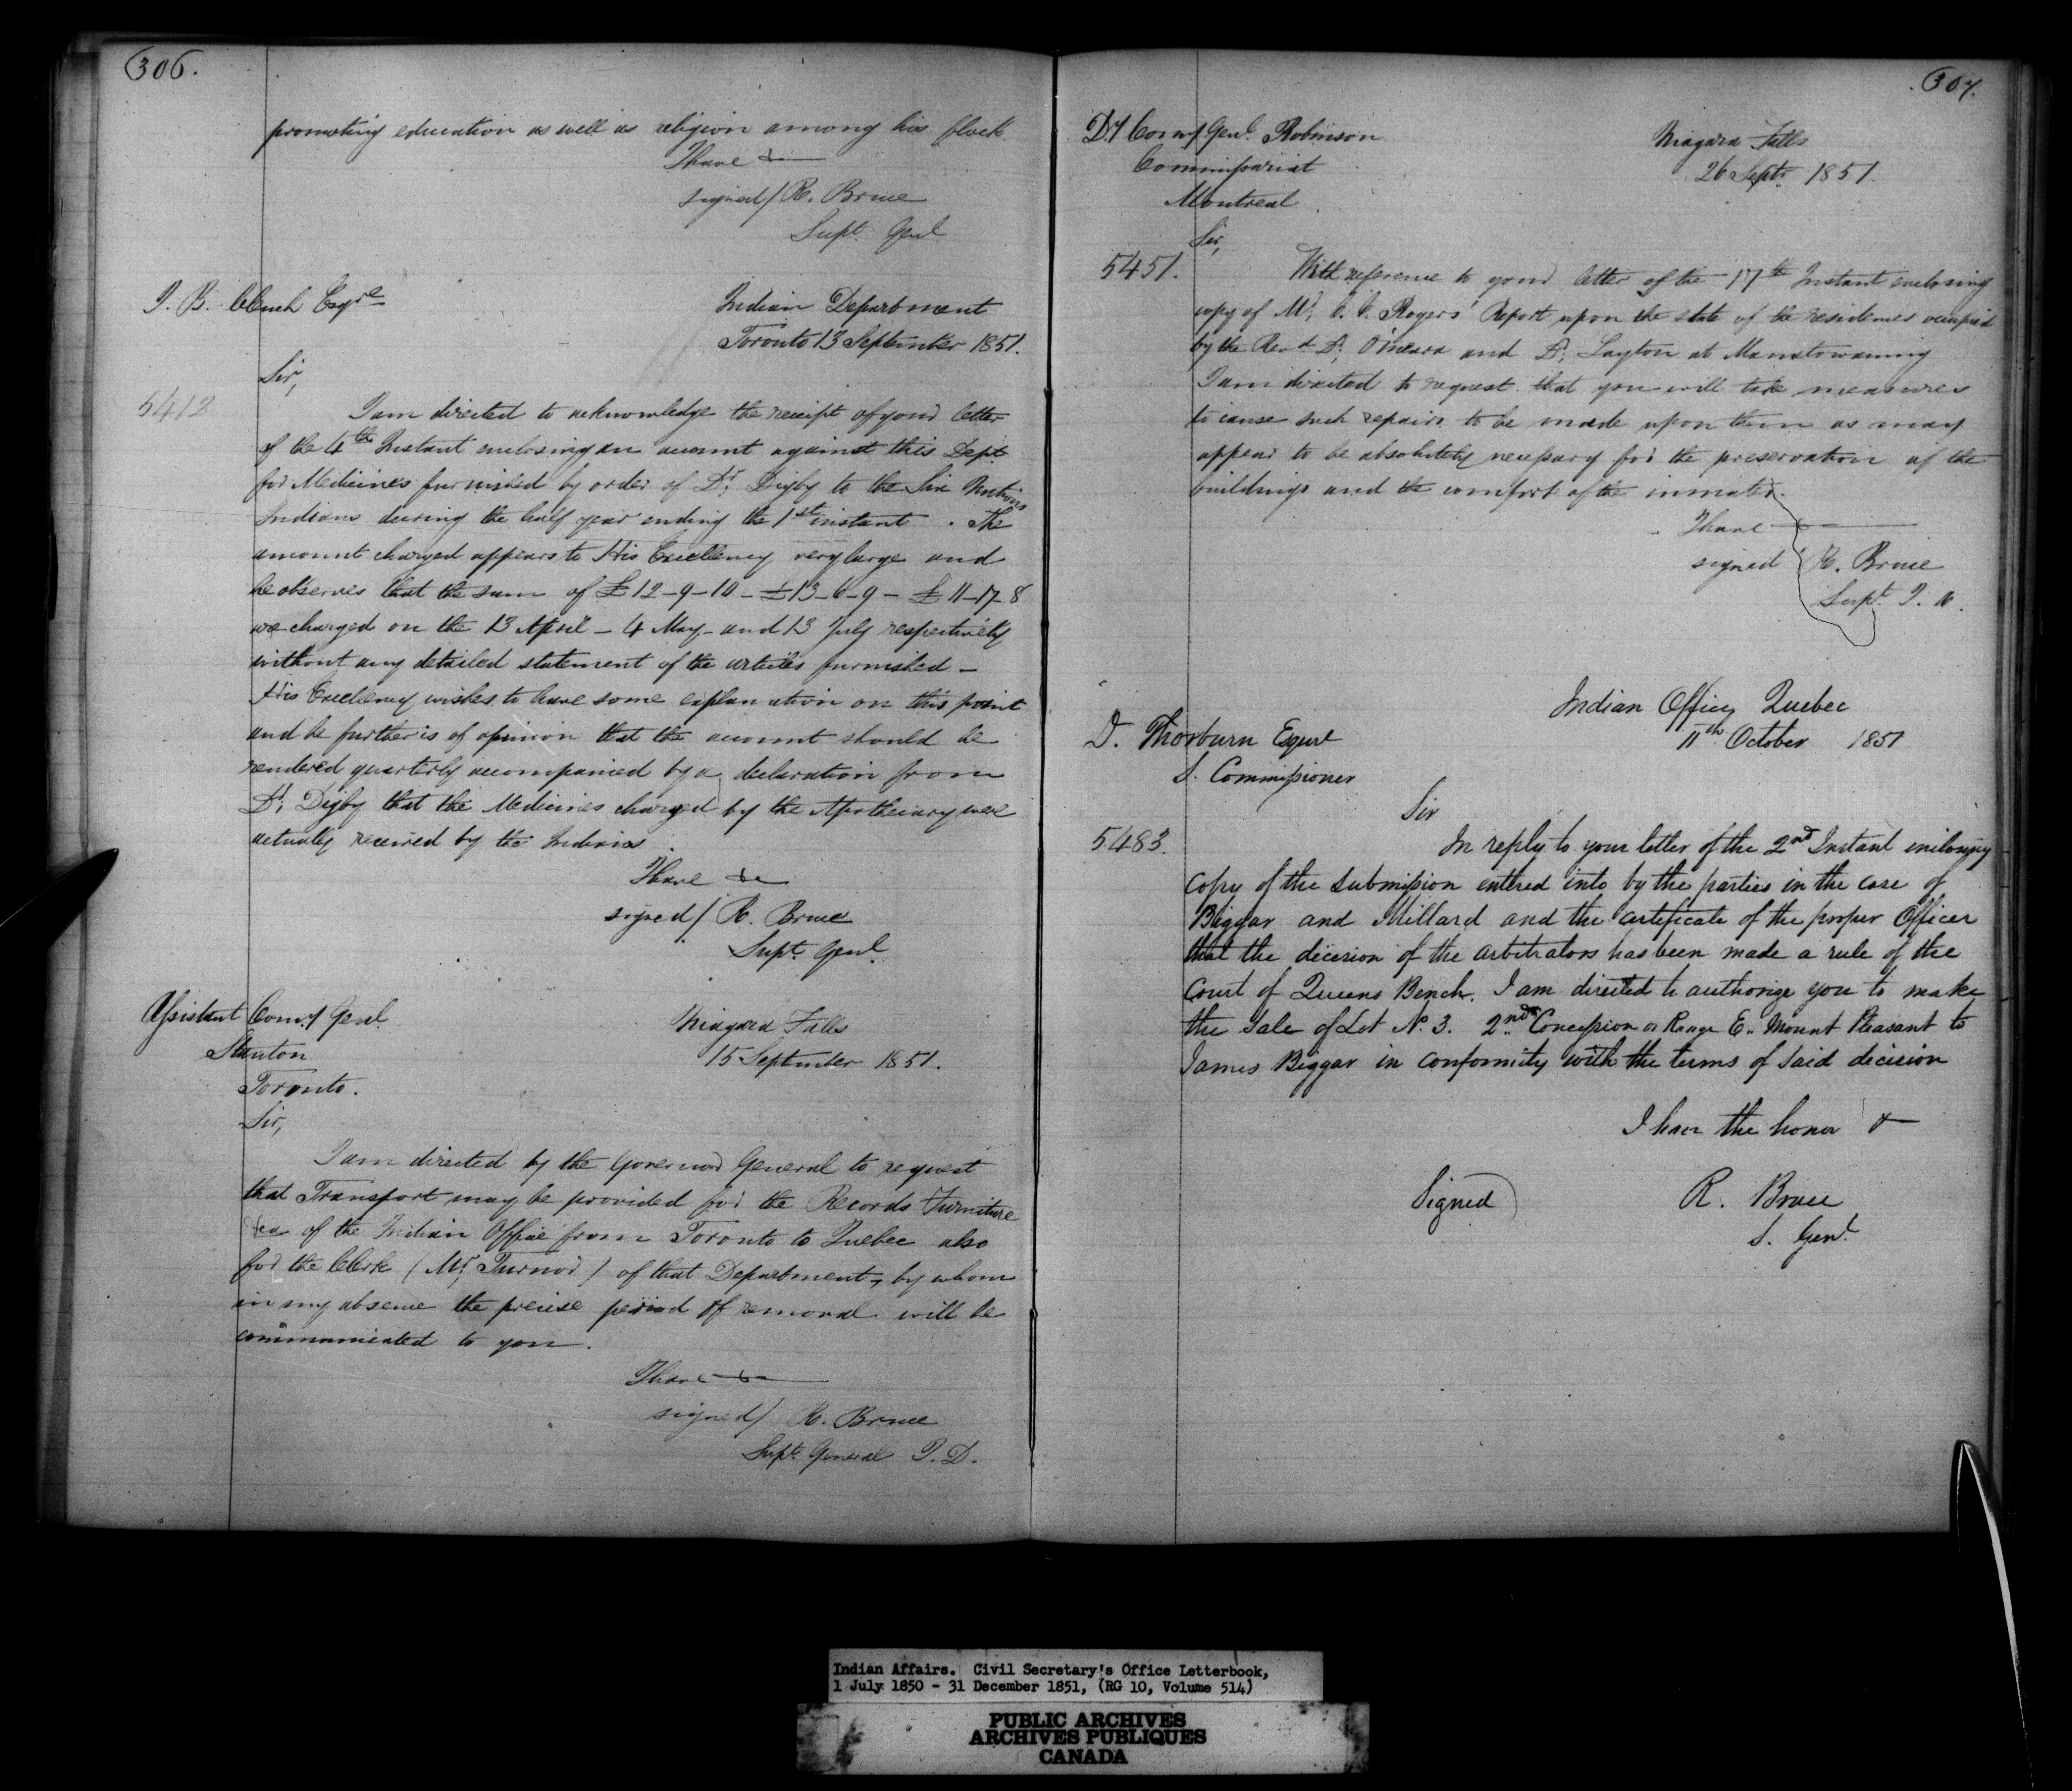 306.
promoting education as well as religion among his flock.
I have &c
signed / R. Bruce
Supt. Genl
J. B. Clench Esqre
Indian Department
Toronto 13 September 1851.
Sir,
5412
I am directed to acknowledge the receipt of your letter
of the 4th Instant enclosing an account against this Dept
for Medicines furnished by order of Dr. Digby to the Six Nations
Indians during the half year ending the 1st instant. The
amount charged appears to His Excellency very large and
he observes that the sum of £12-9-10 - £13-6-9 - £11-17-8
are charged on the 13 April - 4 May - and 13 July respectively
without any detailed statement of the articles furnished -
His Excellency wishes to have some explanation on this point
and he further is of opinion that the account should be
rendered quarterly accompanied by a declaration from
Dr. Digby that the Medicines charged by the Apothecary were
actually received by the Indians.
I have &c
signed / R. Bruce
Supt. Genl.
Assistant Comy Genl.
Stanton
Toronto.
Niagara Falls
15 September 1851.
Sir,
I am directed by the Governor General to request
that Transport may be provided for the Records Furniture
&ca of the Indian Office from Toronto to Quebec also
for the Clerk (Mr. Turnor) of that Department, by whom
in my absence the precise period of removal will be
communicated to you.
I have &c
signed / R. Bruce
Supt. General I. D.
307.
Dy Comy Genl. Robinson
Commissariat
Montreal
Niagara Falls
26 Septr. 1851.
Sir,
5451.
With reference to your letter of the 17th Instant enclosing
copy of Mr. Rogers' Report upon the state of the residences occupied
by the Revd. Dr. O'Meara and Dr. Layton at Manatowaning
I am directed to request that you will take measures
to cause such repairs to be made upon them as may
appear to be absolutely necessary for the preservation of the
buildings and the comfort of the inmates.
I have
signed R. Bruce
Supt. I. A.
Indian Office, Quebec
11th October 1851
D. Thorburn Esqure
S. Commissioner
Sir
5483.
In reply to your letter of the 2nd Instant inclosing
copy of the submission entered into by the parties in the case of
Biggar and Millard and the certificate of the proper Officer
that the decision of the arbitrators has been made a rule of the
Court of Queens Bench. I am directed to authorize you to make
the sale of Lot No. 3. 2nd Concession or Range E. Mount Pleasant to
James Biggar in conformity with the terms of said decision
I have the honor &
Signed) R. Bruce
S. Genl.
Indian Affairs. Civil Secretary's Office Letterbook,
1 July 1850 - 31 December 1851, (RG 10, Volume 514)
PUBLIC ARCHIVES
ARCHIVES PUBLIQUES
CANADA